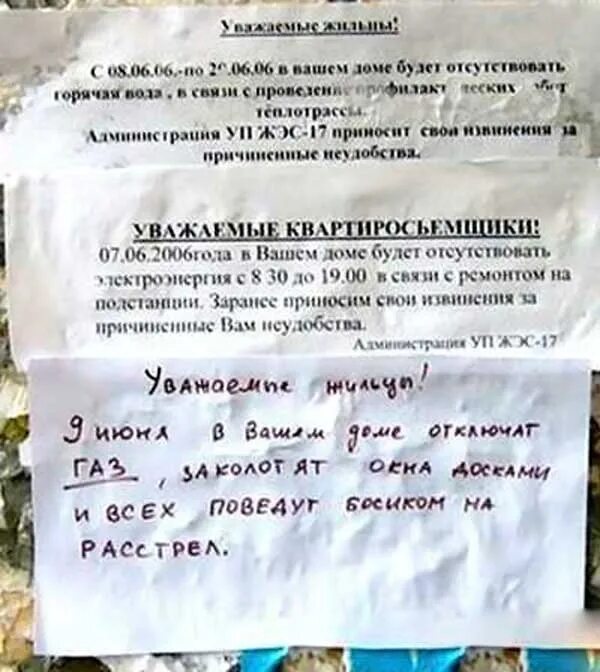 Уважаемые жильцы!
С 08.06.06.-по 2 .06.06 в вашем доме будет отсутствовать
горячая вода , в связи с проведение
теплотрассы.
Администрация УП ЖЭС-17 приносит свои извинения за
причиненные неудобства.
УВАЖАЕМЫЕ КВАРТИРОСЬЕМЩИКИ!
07.06.2006года в Вашем доме будет отсутствовать
электроэнергия с 8 30 до 19.00 в связи с ремонтом на
подстанции. Заранее приносим свои извинения за
причиненные Вам неудобства.
Администрация УП ЖЭС-17
Уважаемые жильцы!
9 июня в Вашем доме отключат
ГАЗ , заколотят окна досками
и всех поведут босиком на
расстрел.